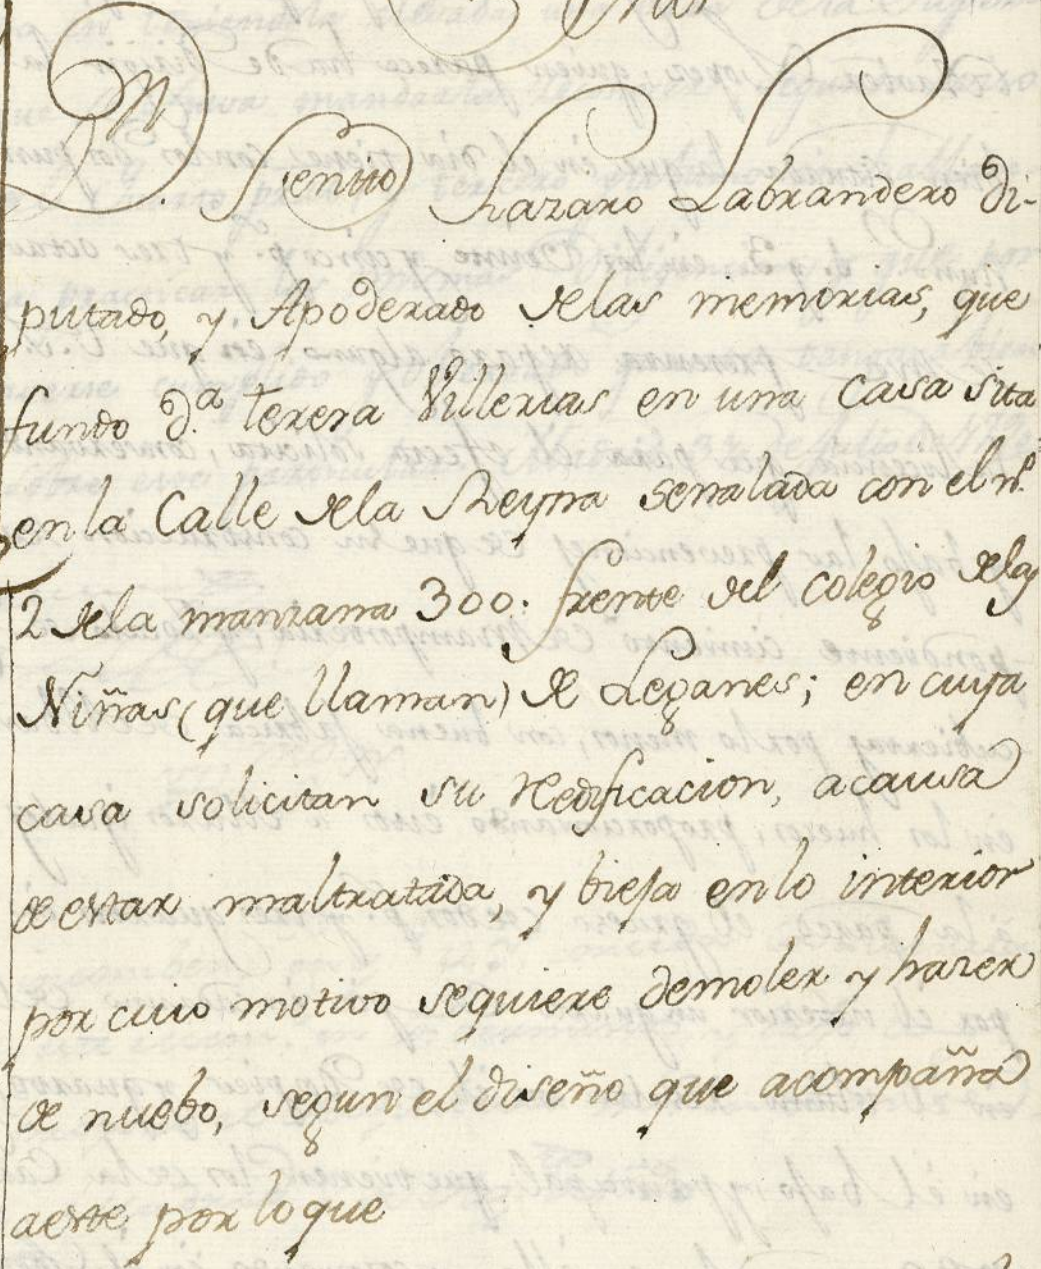 D.n Benito Lazaro Labrandero di-
putado, y Apoderado delas memorias, que
fundo d.a Teresa Villerias en una casa sita
en la Calle dela Reyna señalada con el n.o
2 dela manzana 300. frente del Colegio delas
Niñas (que llaman) de Leganes; en cuya
casa solicitan su redificacion, acausa
de estar maltratada, y bieja en lo interior
por cuio motivo sequiere demoler y hazer
de nuebo, segun el diseño que acompaña
aeste, por lo que